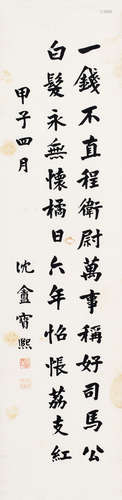 一錢不直程衛尉萬事稱好司馬公
白髮永無懷橘日六年怊悵荔支紅
甲子四月
沈盦寶熙